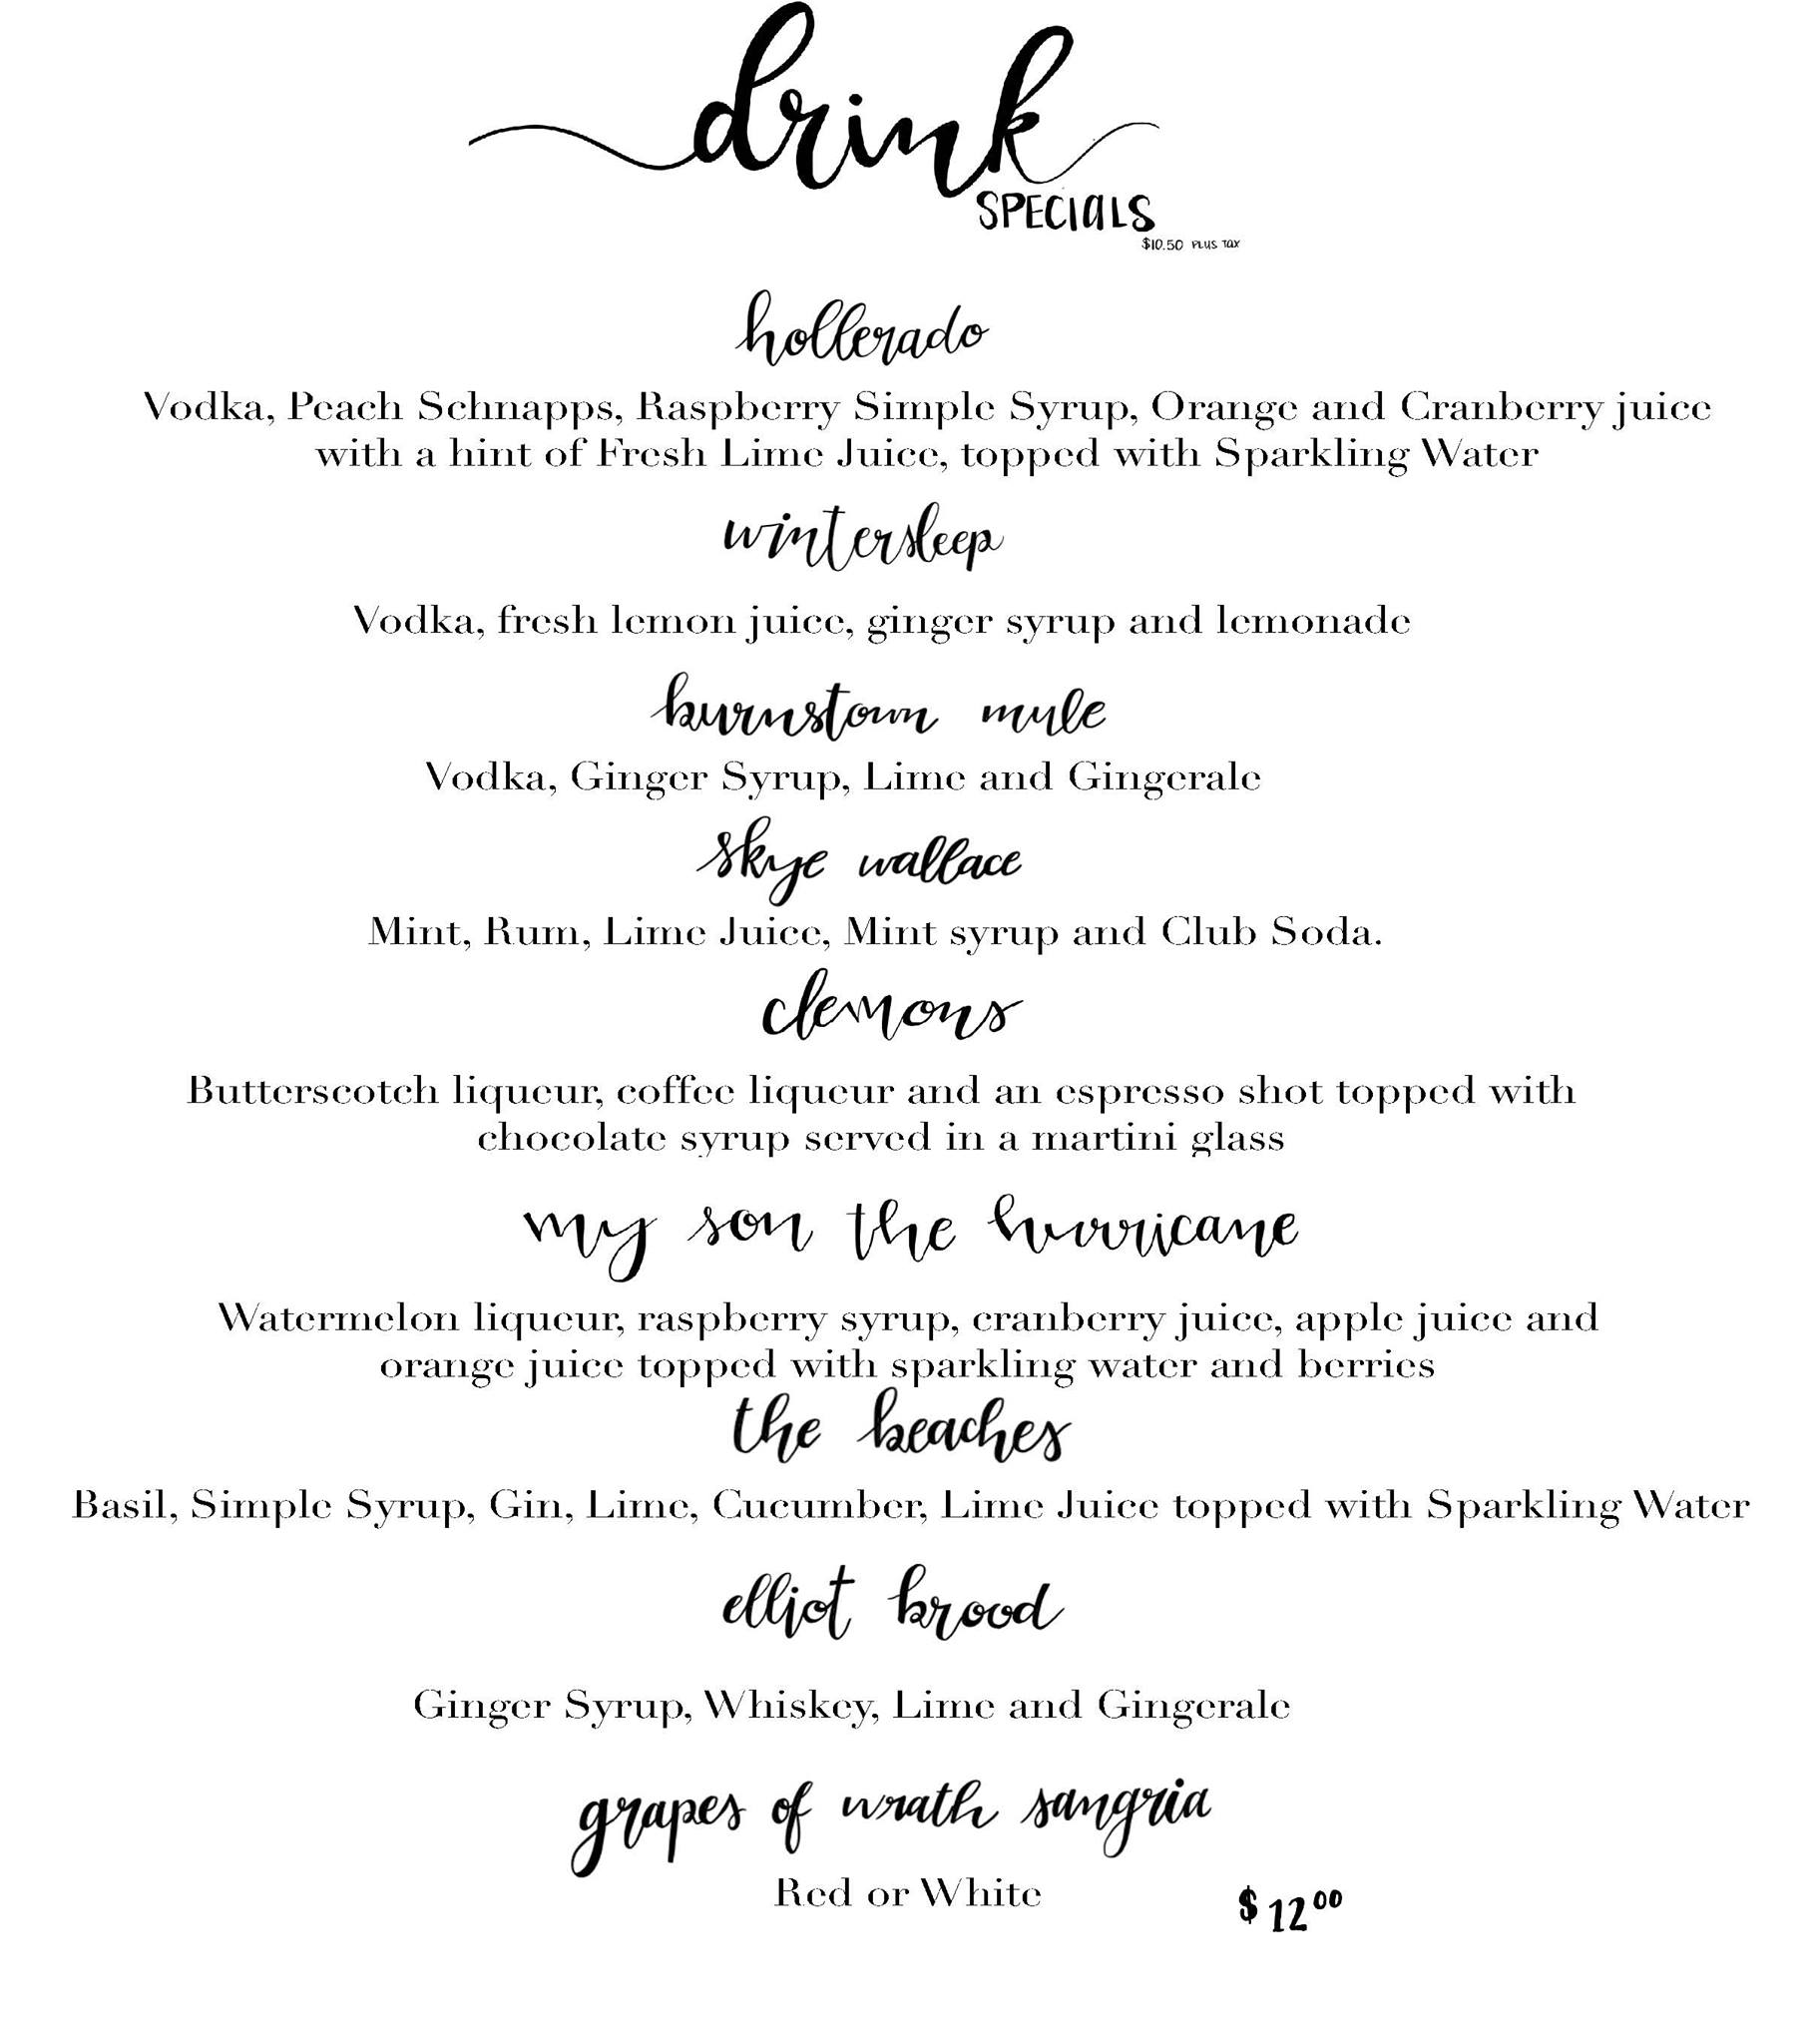 drink
SPECIALS
$10.50 PLUS TAX
hollerado
Vodka, Peach Schnapps, Raspberry Simple Syrup, Orange and Cranberry juice
with a hint of Fresh Lime Juice, topped with Sparkling Water
wintersleep
Vodka, fresh lemon juice, ginger syrup and lemonade
burnstown mule
Vodka, Ginger Syrup, Lime and Gingerale
skye wallace
Mint, Rum, Lime Juice, Mint syrup and Club Soda.
clemons
Butterscotch liqueur, coffee liqueur and an espresso shot topped with
chocolate syrup served in a martini glass
my son the hurricane
Watermelon liqueur, raspberry syrup, cranberry juice, apple juice and
orange juice topped with sparkling water and berries
the beaches
Basil, Simple Syrup, Gin, Lime, Cucumber, Lime Juice topped with Sparkling Water
elliot brood
Ginger Syrup, Whiskey, Lime and Gingerale
grapes of wrath sangria
Red or White $12.00